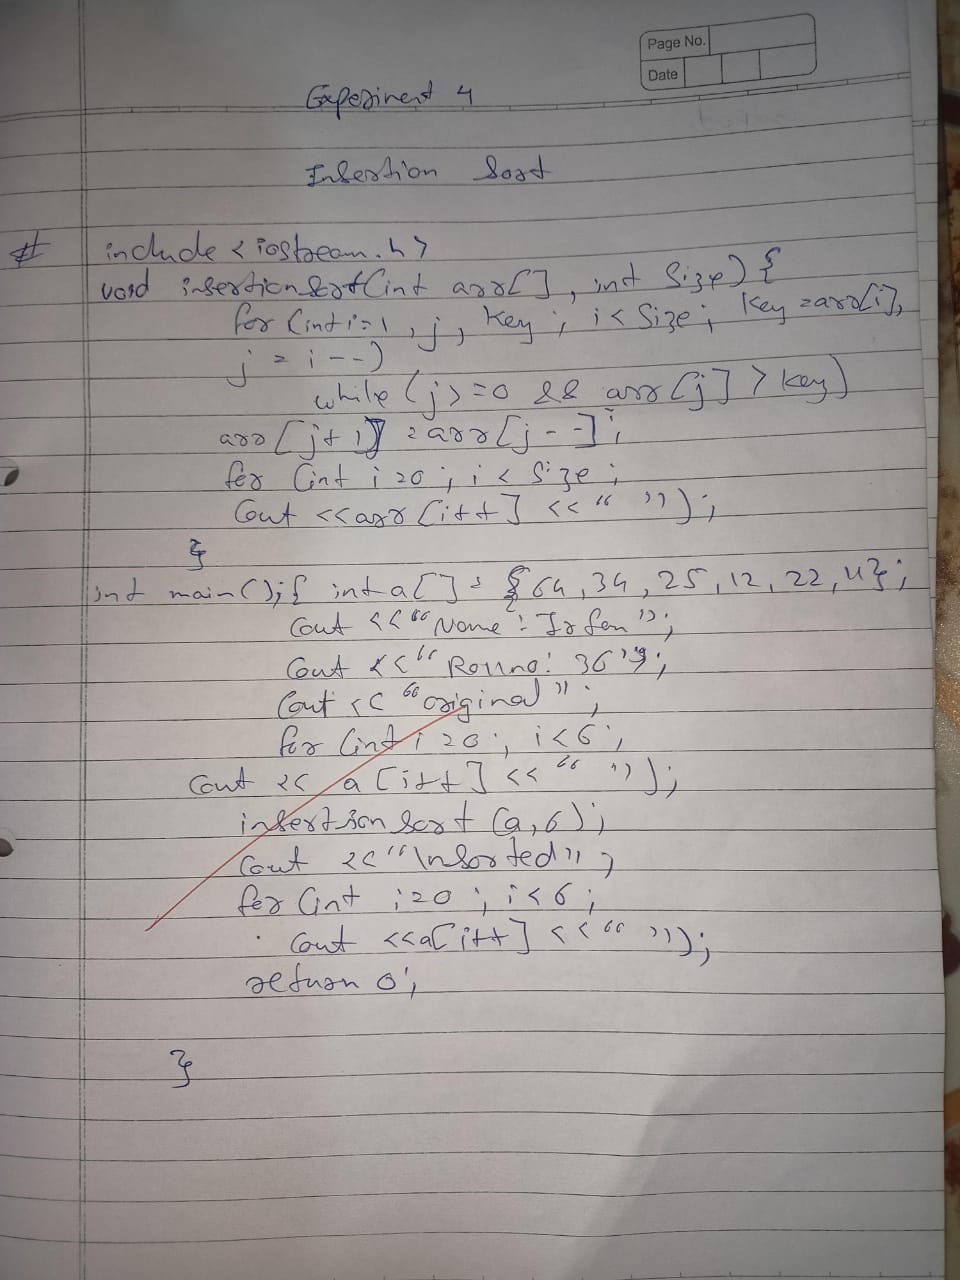 Page No.
Date
Experiment 4
Insertion Sort
# include <iostream.h>
void insertionSort(int arr[], int Size) {
for (int i=1, j, Key; i< Size; Key =arr[i],
j = i--)
while (j>=0 && arr[j] > key)
arr[j+1] = arr[j--];
for (int i=0; i< Size;
Cout <<arr[i++] << " ");
}
int main(); { int a[] = {64, 34, 25, 12, 22, 11};
Cout << "Name: Irfan";
Cout << "Rollno: 36";
Cout << "original";
for (int i=0; i<6;
Cout << a[i++] << " ");
insertion Sort (a,6);
Cout << "Insorted";
for (int i=0; i<6;
Cout <<a[i++] << " ");
return 0;
}